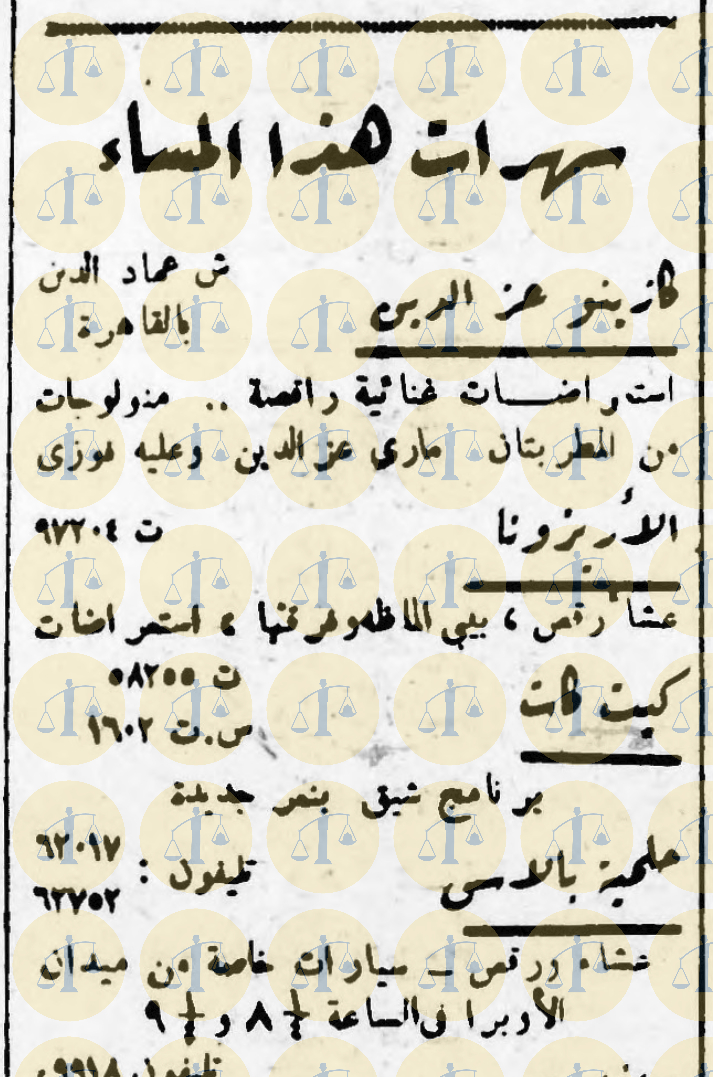 سهرات هذا المساء
كازينو عز الدين
ش عماد الدين
بالقاهرة
استعراضــات غنائية راقصة .. منولوجات
من المطربتان ماري عز الدين وعليه فوزى
الأريزونا
ت ٩٧٢٠٤
عشاء رقص ، ببي الماظه وفرقتها ، استعراضات
كيت كات
ت ٥٨٢٥٥
س.ت ١٦٠٢
برنامج شيق بنمر جديدة
حلمية بالاس
تليفون : ٦٢٠١٧
٦٢٧٥٢
عشاء ورقص – سيارات خاصة من ميدان
الأوبرا فى الساعة ¼ ٨ و ¼ ٩
تليفون